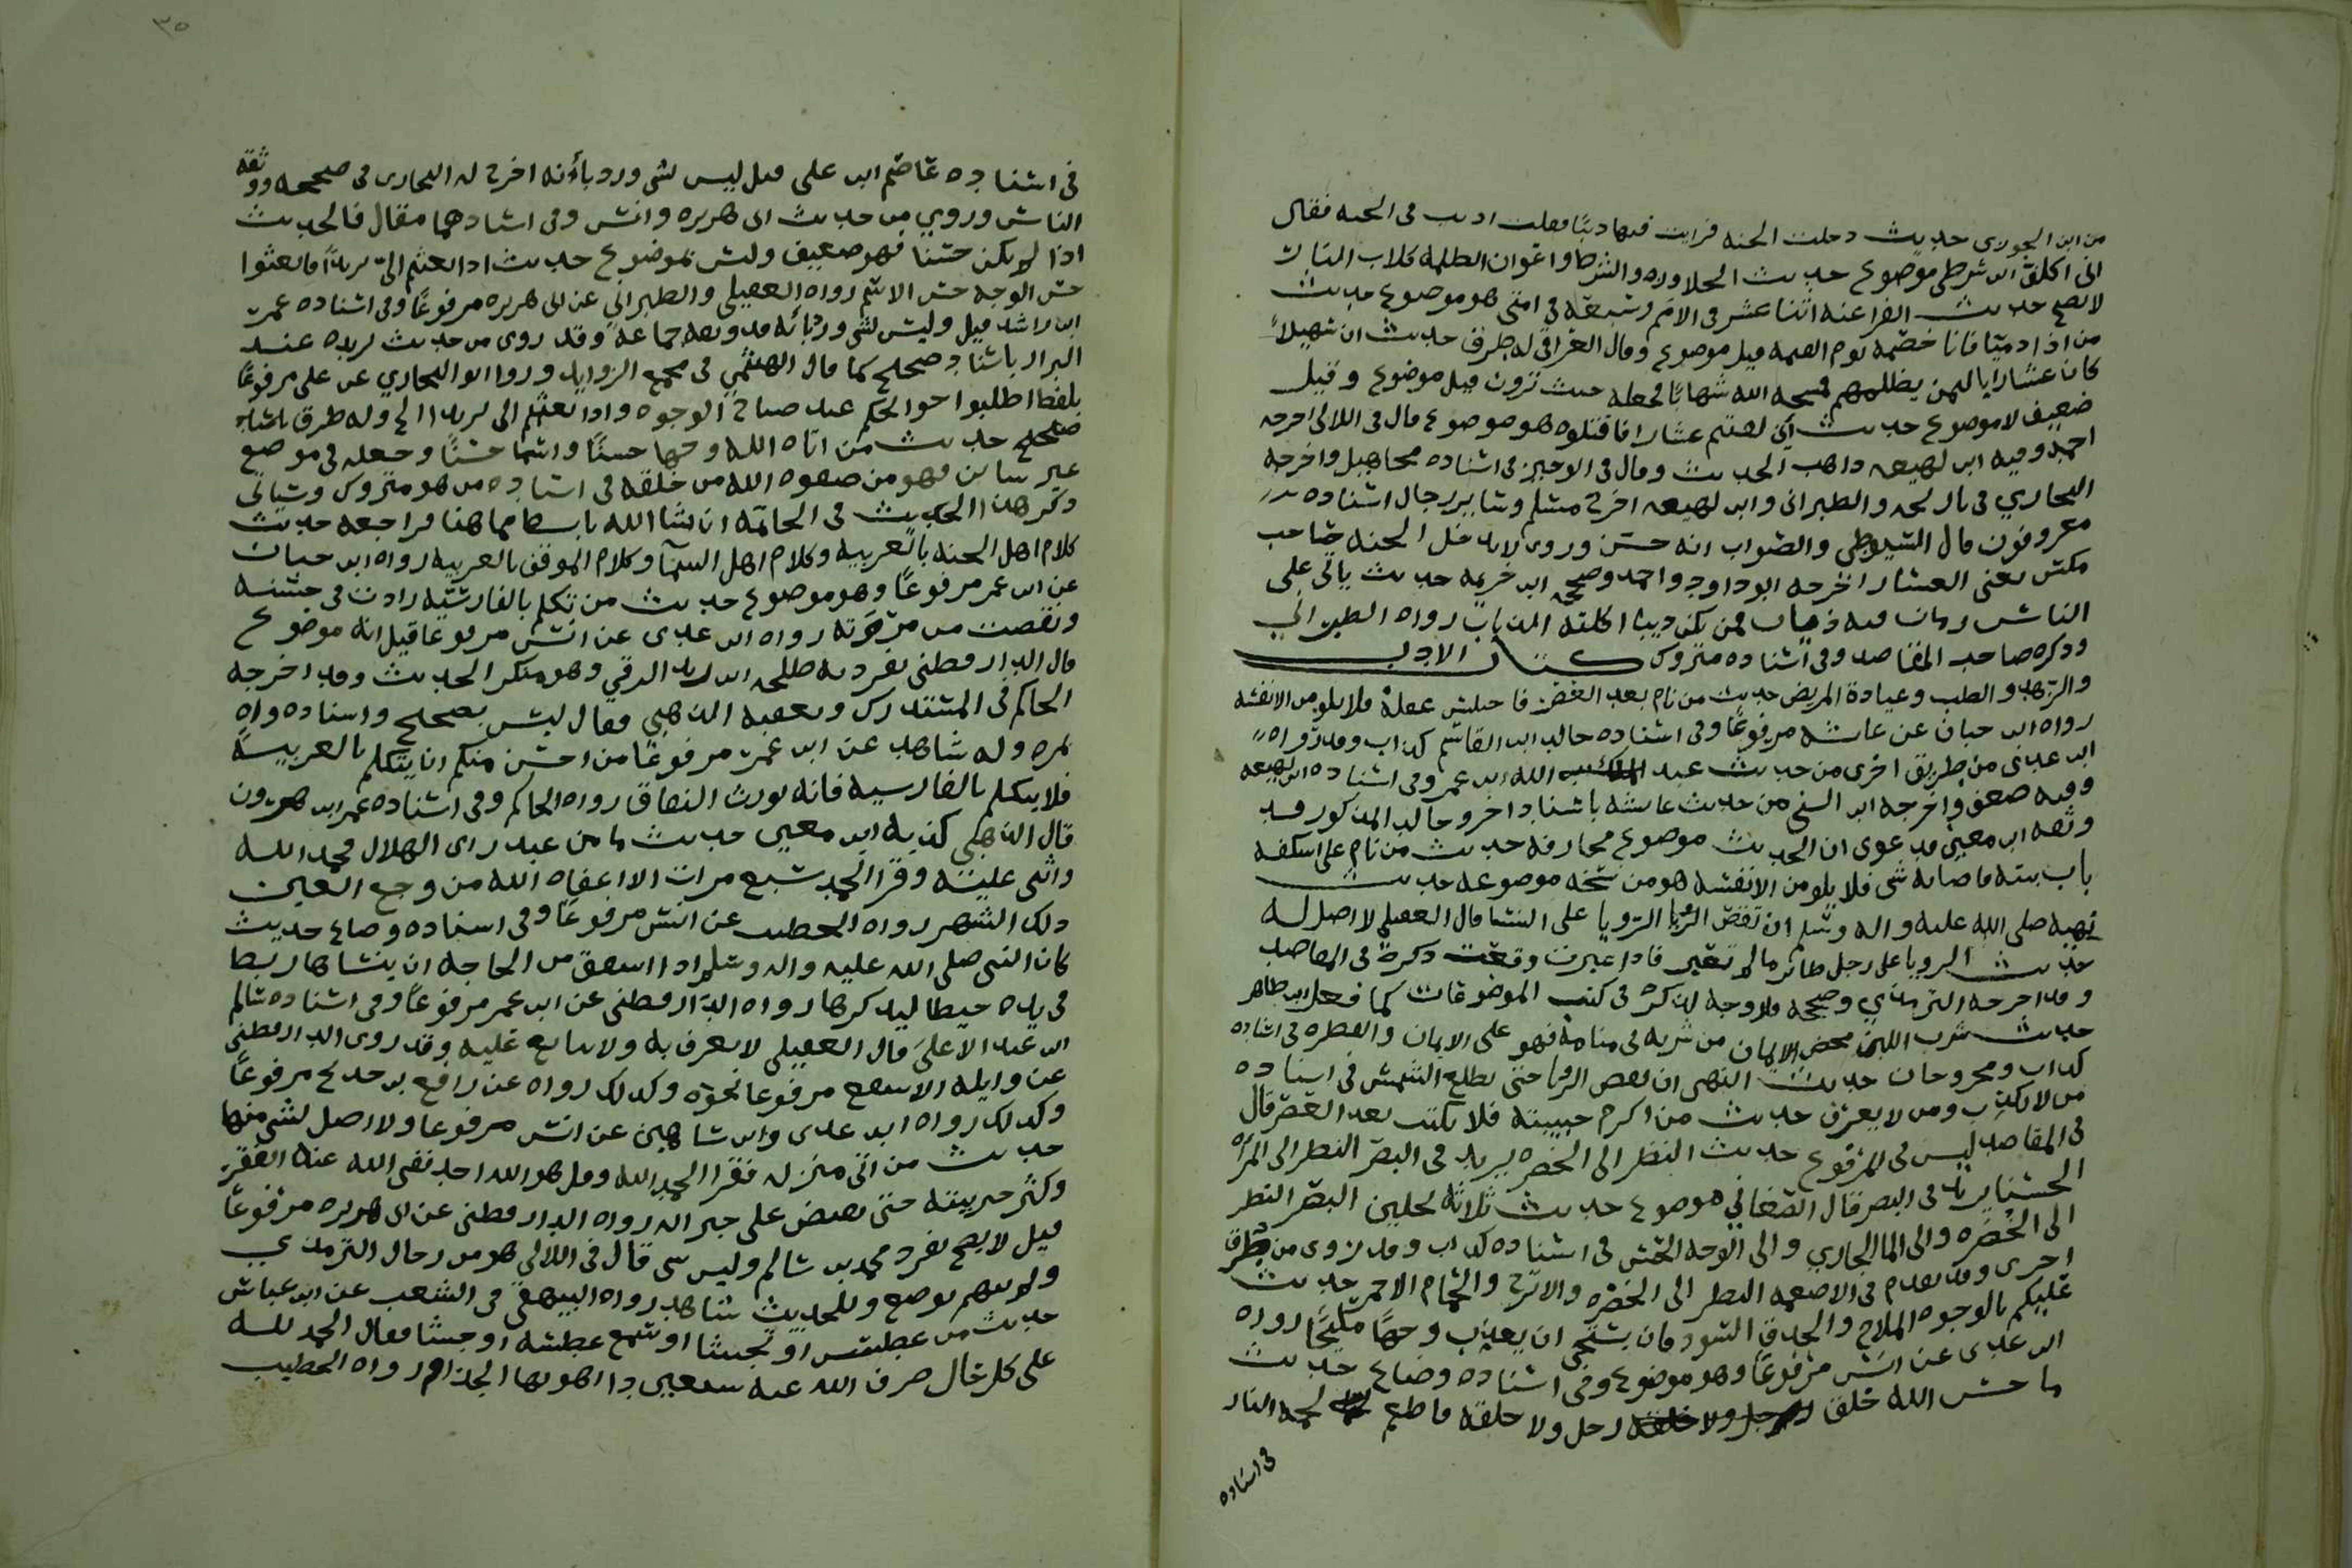 من ابن الجوزى حديث دخلت الجنه فرايت فيها ذئبًا فقلت اذئب فى الجنه فقال
انى اكلت ابن شرطى موضوع حديث الجلاوزه والشرط واعوان الظلمه كلاب النار
لا يصح حديث الفراعنه اثنا عشر فى الامم وسبعه فى امتى هو موضوع حديث
من اذا ذميًا فانا خصمه يوم القيمه قيل موضوع وقال العراقى له طرق حديث ان سهيلاً
كان عشارًا باليمن يظلمهم فمسخه الله شهابًا فجعله حيث ترون قيل موضوع وقيل
ضعيف لا موضوع حديث ان لقيتم عشارا فاقتلوه هو موضوع قال فى اللالى اخرجه
احمد وفيه ابن لهيعه ذاهب الحديث وقال فى الوجيز فى اسناده مجاهيل واخرجه
البخاري فى تاريخه والطبرانى وابن لهيعه اخرج له مسلم وساير رجال اسناده
معروفون قال السيوطى والصواب انه حسن وروى لا يدخل الجنه صاحب
مكس يعنى العشار اخرجه ابو داود واحمد وصححه ابن خزيمه حديث ياتى على
الناس زمان فيه ذياب فمن لم يكن ذيبا اكلته الذياب رواه الطبرانى
وذكره صاحب المقاصد وفى اسناده متروك كتاب الادب
والزهد والطب وعيادة المريض حديث من نام بعد العصر فاختلس عقله فلا يلومن الا نفسه
رواه ابن حبان عن عائشه مرفوعًا وفى اسناده خالد ابن القاسم كذاب وقد رواه
ابن عدى من طريق اخرى من حديث عبد الله ابن عمر وفى اسناده ابن لهيعه
وفيه ضعف واخرجه ابن السنى من حديث عائشه باسناد اخر وخالد المذكور قد
وثقه ابن معين فدعوى ان الحديث موضوع مجازفه حديث من نام على اسكفه
باب بيته فاصابه شى فلا يلومن الا نفسه هو من نسخه موضوعه حديث
نهيه صلى الله عليه واله وسلم ان تقص الرويا على النسا قال العقيلى لا اصل له
حديث الرويا على رجل طائر ما لم تعبر فاذا عبرت وقعت ذكره فى المقاصد
وقد اخرجه الترمذي وصححه فلا وجه لذكره فى كتب الموضوعات كما فعل ابن طاهر
حديث شرب اللبن محض الايمان من شربه فى منامه فهو على الايمان والفطره فى اسناده
كذاب ومجروحان حديث النهى ان تقص الرويا حتى تطلع الشمس فى اسناده
من لا يكتب ومن لا يعرف حديث من اكرم حبيبته فلا يكتب بعد العصر قال
فى المقاصد ليس فى المرفوع حديث النظر الى الخضره يزيد فى البصر النظر الى المراه
الحسنا يزيد فى البصر قال الصغاني هو موضوع حديث ثلاثه يجلين البصر النظر
الى الخضره والى الما الجاري والى الوجه الحسن فى اسناده كذاب وقد روى من طرق
اخرى وقد تقدم فى الاطعمه النظر الى الخضره والاترج والحمام الاحمر حديث
عليكم بالوجوه الملاح والحدق السود فان الله يستحي ان يعذب وجهًا مليحًا رواه
ابن عدى عن انس مرفوعًا وهو موضوع وفى اسناده وضاع حديث
ما حسن الله خلق رجل ولا خلقه فاطعم لحمه النار
فى اسناده
٣٥
فى اسناده عاصم ابن على قيل ليس بشى ورد بأنه اخرج له البخارى فى صحيحه ووثقه
الناس وروي من حديث ابى هريره وانس وفى اسنادهما مقال فالحديث
اذا لم يكن حسنا فهو ضعيف وليس بموضوع حديث اذا بعثتم الىّ بريدًا فابعثوا
حسن الوجه حسن الاسم رواه العقيلى والطبراني عن ابى هريره مرفوعًا وفى اسناده عمر
ابن راشد قيل وليس بشى ورد بأنه قد وثقه جماعه وقد روى من حديث بريده عند
البزار باسناد صحيح كما قال الهيثمي فى مجمع الزوايد وروا ابو البخاري عن على مرفوعًا
بلفظ اطلبوا حوايجكم عند صباح الوجوه واذا بعثتم الى بريدا الخ وله طرق باسناد
صحيح حديث من اتاه الله وجهًا حسنًا واسمًا حسنًا وجعله فى موضع
غير شاين فهو من صفوه الله من خلقه فى اسناده من هو متروك وسياتى
ذكر هذا الحديث فى الخاتمه ان شا الله بابسط مما هنا فراجعه حديث
كلام اهل الجنه بالعربيه وكلام اهل السمآ وكلام الموقف بالعربيه رواه ابن حبان
عن ابن عمر مرفوعًا وهو موضوع حديث من تكلم بالفارسيه زادت فى خبثه
ونقصت من مروته رواه ابن عدى عن انس مرفوعا قيل انه موضوع
قال الدارقطنى تفرد به طلحه ابن زيد الرقي وهو منكر الحديث وقد اخرجه
الحاكم فى المستدرك وتعقبه الذهبي فقال ليس بصحيح واسناده واه
بمره وله شاهد عن ابن عمر مرفوعًا من احسن منكم ان يتكلم بالعربيه
فلا يتكلم بالفارسيه فانه يورث النفاق رواه الحاكم وفى اسناده عمر ابن هرون
قال الذهبي كذبه ابن معين حديث ما من عبد راى الهلال فحمد الله
واثنى عليه وقرا الحمد سبع مرات الا اعفاه الله من وجع العين
ذلك الشهر رواه الخطيب عن انس مرفوعًا وفى اسناده وضاع حديث
كان النبى صلى الله عليه واله وسلم اذا اشفق من الحاجه ان ينساها ربط
فى يده خيطا ليذكرها رواه الدارقطنى عن ابن عمر مرفوعًا وفى اسناده سالم
ابن عبد الاعلى قال العقيلى لا يعرف به ولا يتابع عليه وقد روى الدارقطنى
عن واثله الاسقع مرفوعا نحوه وكذلك رواه عن رافع بن خديج مرفوعًا
وكذلك رواه ابن عدى وابن شاهين عن انس مرفوعا ولا اصل لشى منها
حديث من اتى منزله فقرا الحمد لله وقل هو الله احد نفى الله عنه الفقر
وكثر خير بيته حتى يفيض على جيرانه رواه الدارقطنى عن ابى هريره مرفوعًا
قيل لا يصح تفرد محمد بن سالم وليس بشى قال فى اللالى هو من رجال الترمذي
ولم يتهم بوضع وللحديث شاهد رواه البيهقى فى الشعب عن ابن عباس
حديث من عطس او تجشا او سمع عطسه او جشا فقال الحمد لله
على كل حال صرف الله عنه سبعين دا اهونها الجذام رواه الخطيب